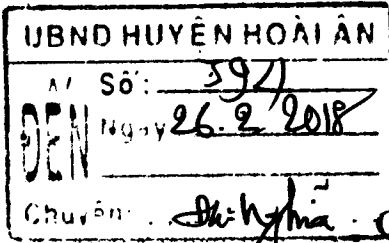 UBND HUYỆN HOÀI ÂN
ĐẾN
Số:
Ngày 26.2.2018
Chuyển: Nghĩa